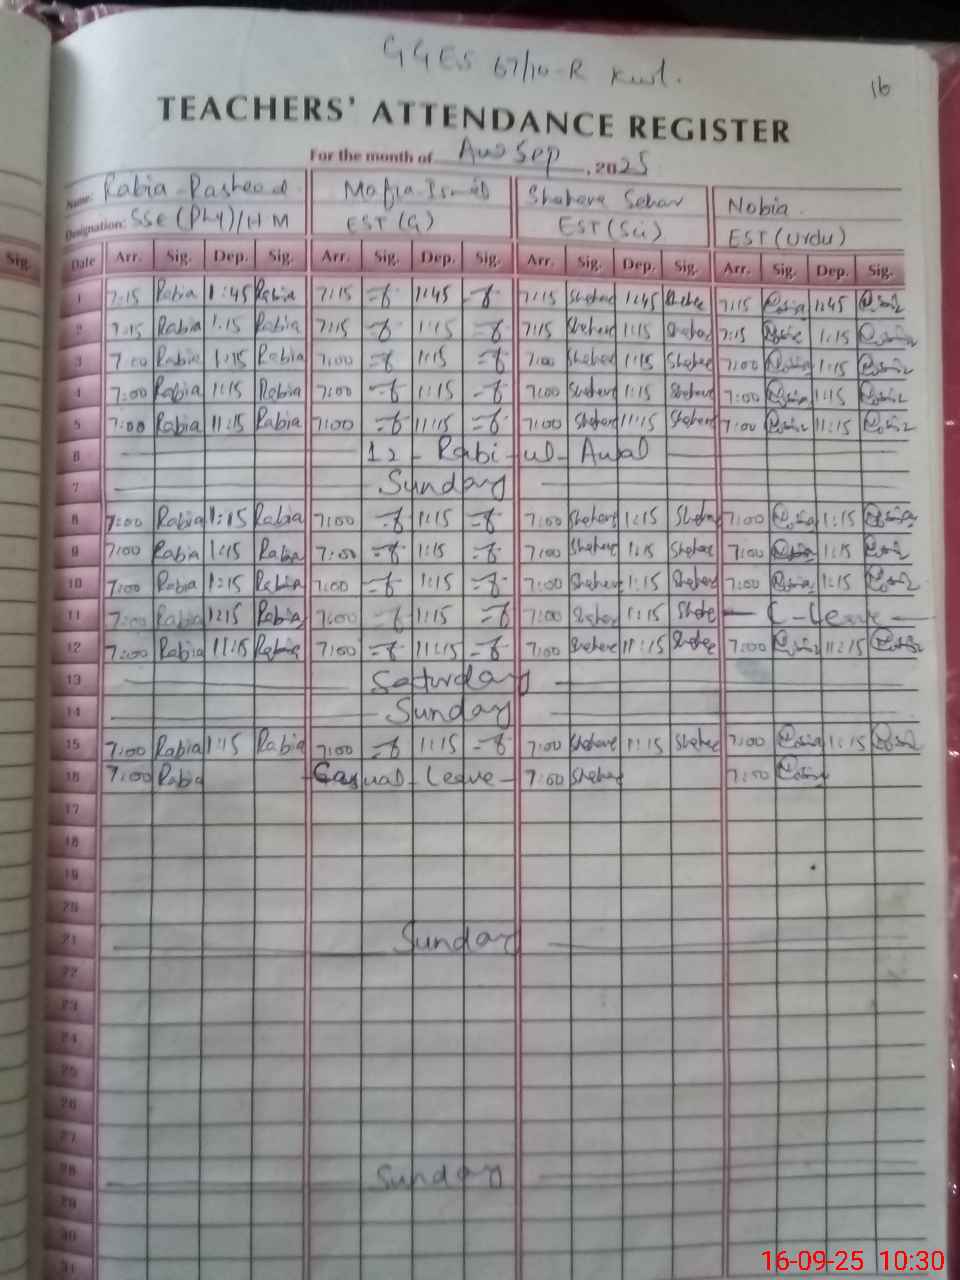 GGES 67/10-R Kwl.
16
TEACHERS' ATTENDANCE REGISTER
For the month of Sep, 2025
Name: Rabia Rasheed Mafia Ismail Shahera Sehar Nobia.
Designation: SSE (Phy)/HM EST (G) EST (Sci) EST (Urdu)
Sig.
Date Arr. Sig. Dep. Sig. Arr. Sig. Dep. Sig. Arr. Sig. Dep. Sig. Arr. Sig. Dep. Sig.
1 7:15 Rabia 1:45 Rabia 7:15 1:45 7:15 Shehere 1:45 Shehere 7:15 1:45
2 7:15 Rabia 1:15 Rabia 7:15 1:15 7:15 Shehere 1:15 Shehere 7:15 1:15
3 7:00 Rabia 1:15 Rabia 7:00 1:15 7:00 Shehere 1:15 Shehere 7:00 1:15
4 7:00 Rabia 1:15 Rabia 7:00 1:15 7:00 Shehere 1:15 Shehere 7:00 1:15
5 7:00 Rabia 11:15 Rabia 7:00 11:15 7:00 Shehere 11:15 Shehere 7:00 11:15
6 12 - Rabi-ul-Awal
7 Sunday
8 7:00 Rabia 1:15 Rabia 7:00 1:15 7:00 Shehere 1:15 Shehere 7:00 1:15
9 7:00 Rabia 1:15 Rabia 7:00 1:15 7:00 Shehere 1:15 Shehere 7:00 1:15
10 7:00 Rabia 1:15 Rabia 7:00 1:15 7:00 Shehere 1:15 Shehere 7:00 1:15
11 7:00 Rabia 1:15 Rabia 7:00 1:15 7:00 Shehere 1:15 Shehere C-Leave
12 7:00 Rabia 11:15 Rabia 7:00 11:15 7:00 Shehere 11:15 Shehere 7:00 11:15
13 Saturday
14 Sunday
15 7:00 Rabia 1:15 Rabia 7:00 1:15 7:00 Shehere 1:15 Shehere 7:00 1:15
16 7:00 Rabia Casual-Leave 7:00 Shehere 7:00
17
18
19
20
21 Sunday
22
23
24
25
26
27
28 Sunday
29
30
31
16-09-25 10:30